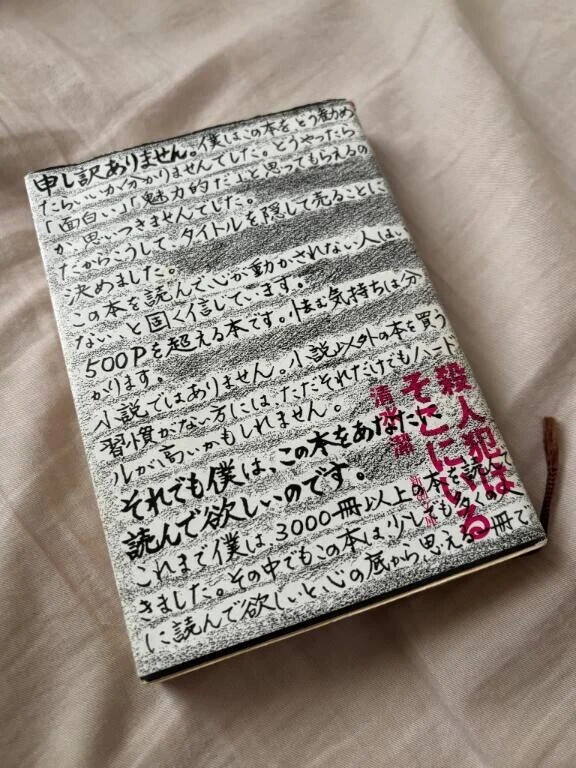 申し訳ありません。僕はこの本をどう勧め
たらいいか分かりませんでした。どうやったら
「面白い」「魅力的だ」と思ってもらえるの
か、思いつきませんでした。
だからこうして、タイトルを隠して売ることに
決めました。
この本を読んで、心が動かされない人はい
ない、と固く信じています。
500Pを超える本です。怯む気持ちは分
かります。
小説ではありません。小説以外の本を買う
習慣がない方には、ただそれだけでもハード
ルが高いかもしれません。
それでも僕は、この本をあなたに
読んで欲しいのです。
これまで僕は3000冊以上の本を読んで
きました。その中でもこの本は、少しでも多くの人
に読んで欲しいと心の底から思える一冊で
殺人犯は
そこにいる
清水潔